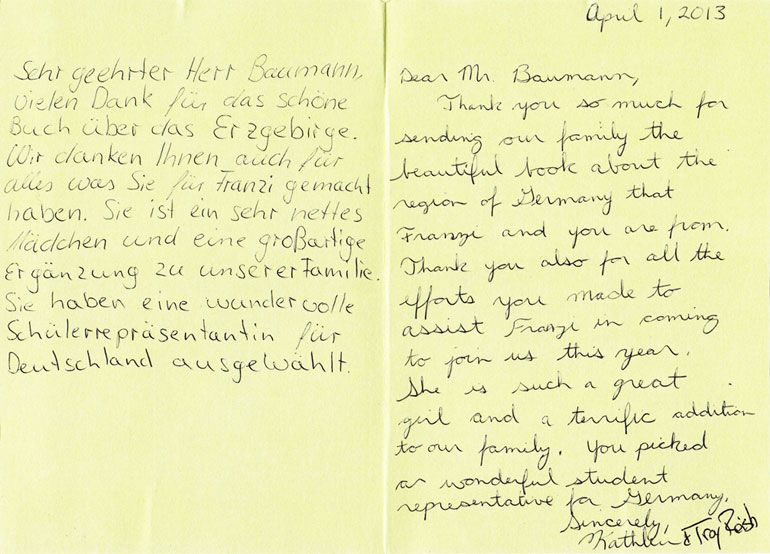 Sehr geehrter Herr Baumann,
vielen Dank für das schöne
Buch über das Erzgebirge.
Wir danken Ihnen auch für
alles was Sie für Franzi gemacht
haben. Sie ist ein sehr nettes
Mädchen und eine großartige
Ergänzung zu unserer Familie.
Sie haben eine wundervolle
Schülerrepräsentantin für
Deutschland ausgewählt.
April 1, 2013
Dear Mr. Baumann,
Thank you so much for
sending our family the
beautiful book about the
region of Germany that
Franzi and you are from.
Thank you also for all the
efforts you made to
assist Franzi in coming
to join us this year.
She is such a great
girl and a terrific addition
to our family. You picked
a wonderful student
representative for Germany.
Sincerely,
Kathleen & Troy